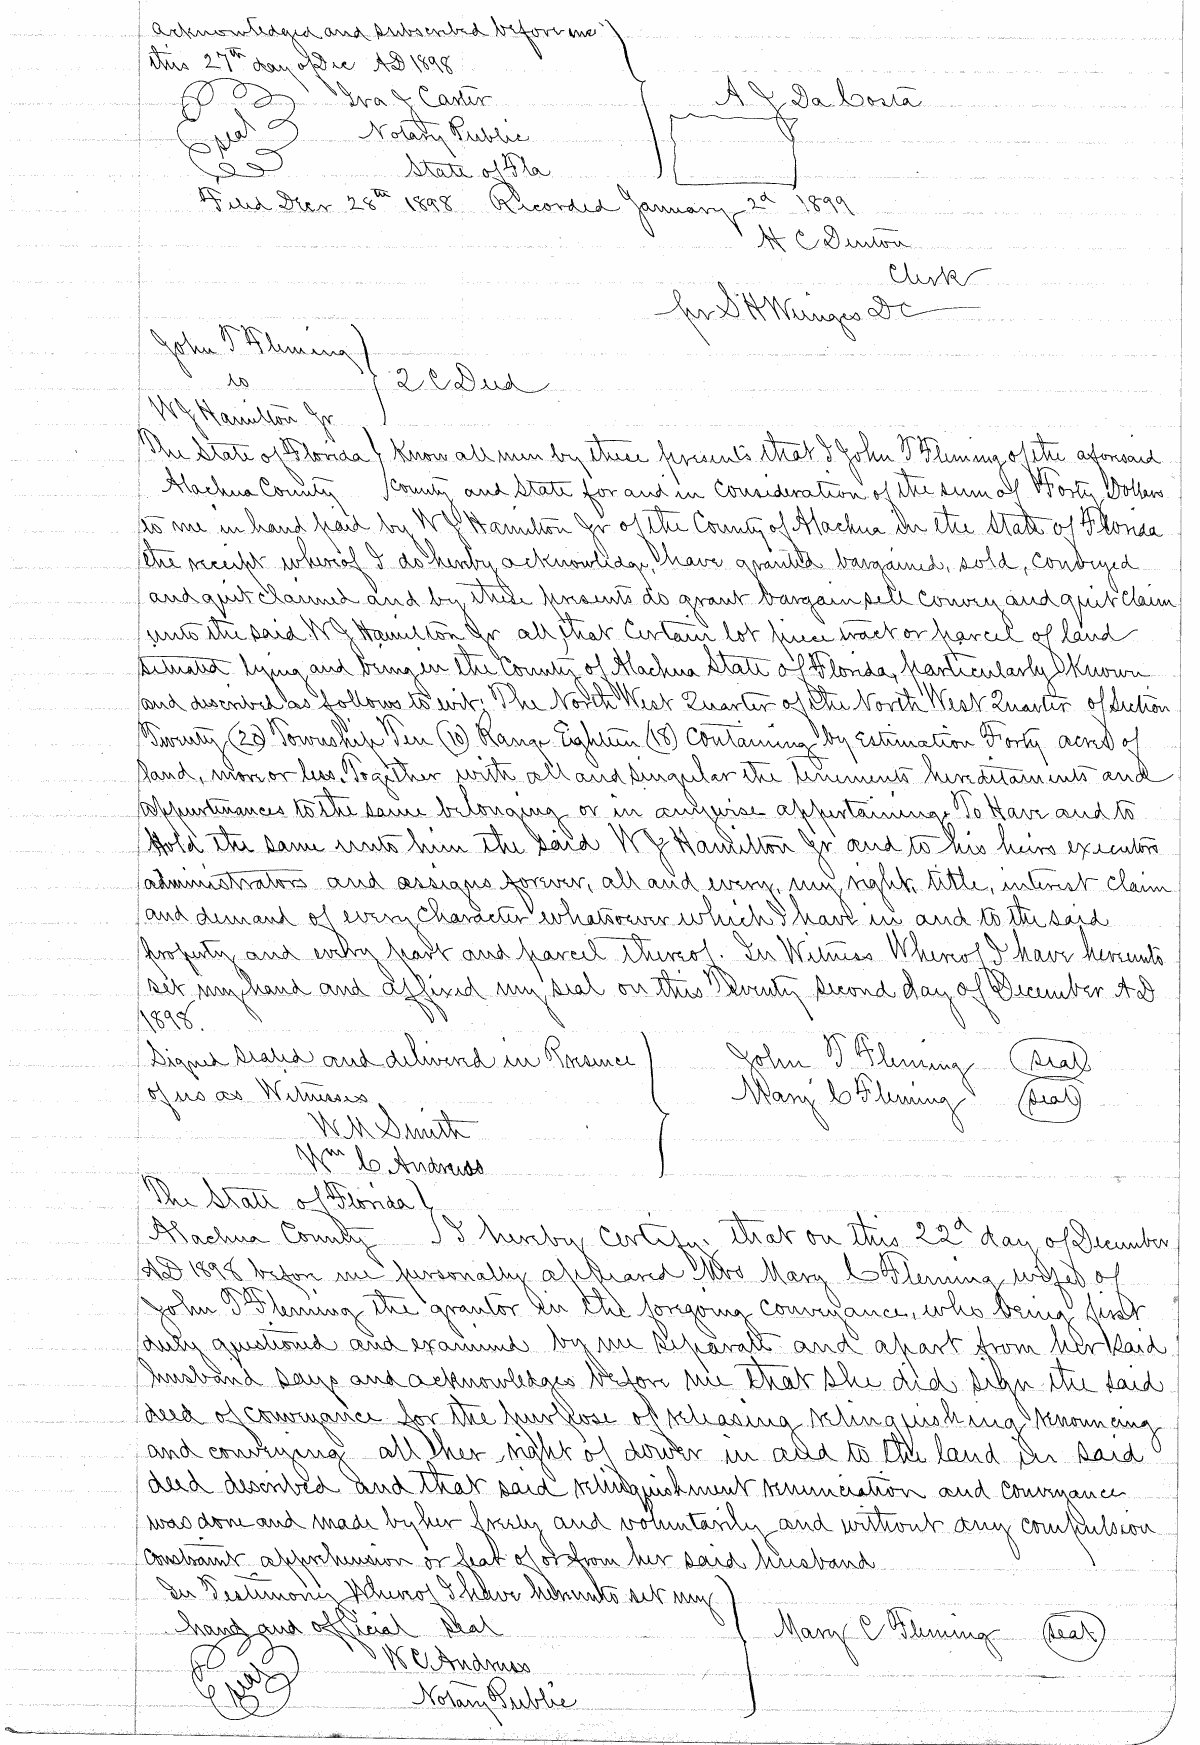 Acknowledged and subscribed before me
this 27th day of Dec AD 1898
Ira J Carter
A J Da Costa
Seal
Notary Public
State of Fla
Filed Decr 28th 1898 Recorded January 2d 1899
H C Denton
Clerk
per S H Wienges DC
John T Fleming
to
2 C Deed
W J Hamilton Jr
The State of Florida Know all men by these presents that I John T Fleming of the aforesaid
Alachua County County and State for and in consideration of the sum of Forty Dollars
to me in hand paid by W J Hamilton Jr of the County of Alachua in the State of Florida
the receipt whereof I do hereby acknowledge, have granted bargained, sold, conveyed
and quit claimed and by these presents do grant bargain sell convey and quit claim
unto the said W J Hamilton Jr all that certain lot piece tract or parcel of land
situated lying and being in the County of Alachua State of Florida, particularly known
and described as follows to wit: The North West Quarter of the North West Quarter of Section
Twenty (20) Township Ten (10) Range Eighteen (18) containing by estimation Forty acres of
land, more or less. Together with all and singular the tenements hereditaments and
appurtenances to the same belonging or in anywise appertaining. To Have and to
Hold the same unto him the said W J Hamilton Jr and to his heirs executors
administrators and assigns forever, all and every, my, right, title, interest claim
and demand of every character whatsoever which I have in and to the said
property and every part and parcel thereof. In Witness Whereof I have hereunto
set my hand and affixed my seal on this Twenty second day of December AD
1898.
Signed sealed and delivered in Presence
John T Fleming Seal
of us as Witnesses
Mary C Fleming Seal
W M Smith
Wm C Andruss
The State of Florida
Alachua County I hereby certify, that on this 22d day of December
AD 1898 before me personally appeared Mrs Mary C Fleming wifed of
John T Fleming the grantor in the foregoing conveyance, who being first
duly questioned and examined by me separate and apart from her said
husband says and acknowledges before me that she did sign the said
deed of conveyance for the purpose of releasing relinquishing renouncing
and conveying all her right of dower in and to the land in said
deed described and that said relinquishment renunciation and conveyance
was done and made by her freely and voluntarily and without any compulsion
constraint apprehension or fear of or from her said husband
In Testimony Whereof I have hereunto set my
hand and official seal
Mary C Fleming Seal
W C Andruss
Seal
Notary Public